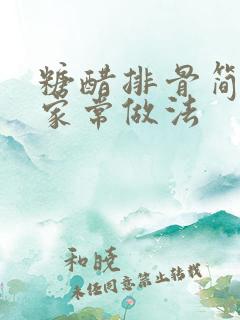 糖醋排骨简
家常做法
和晓
未经同意禁止转载